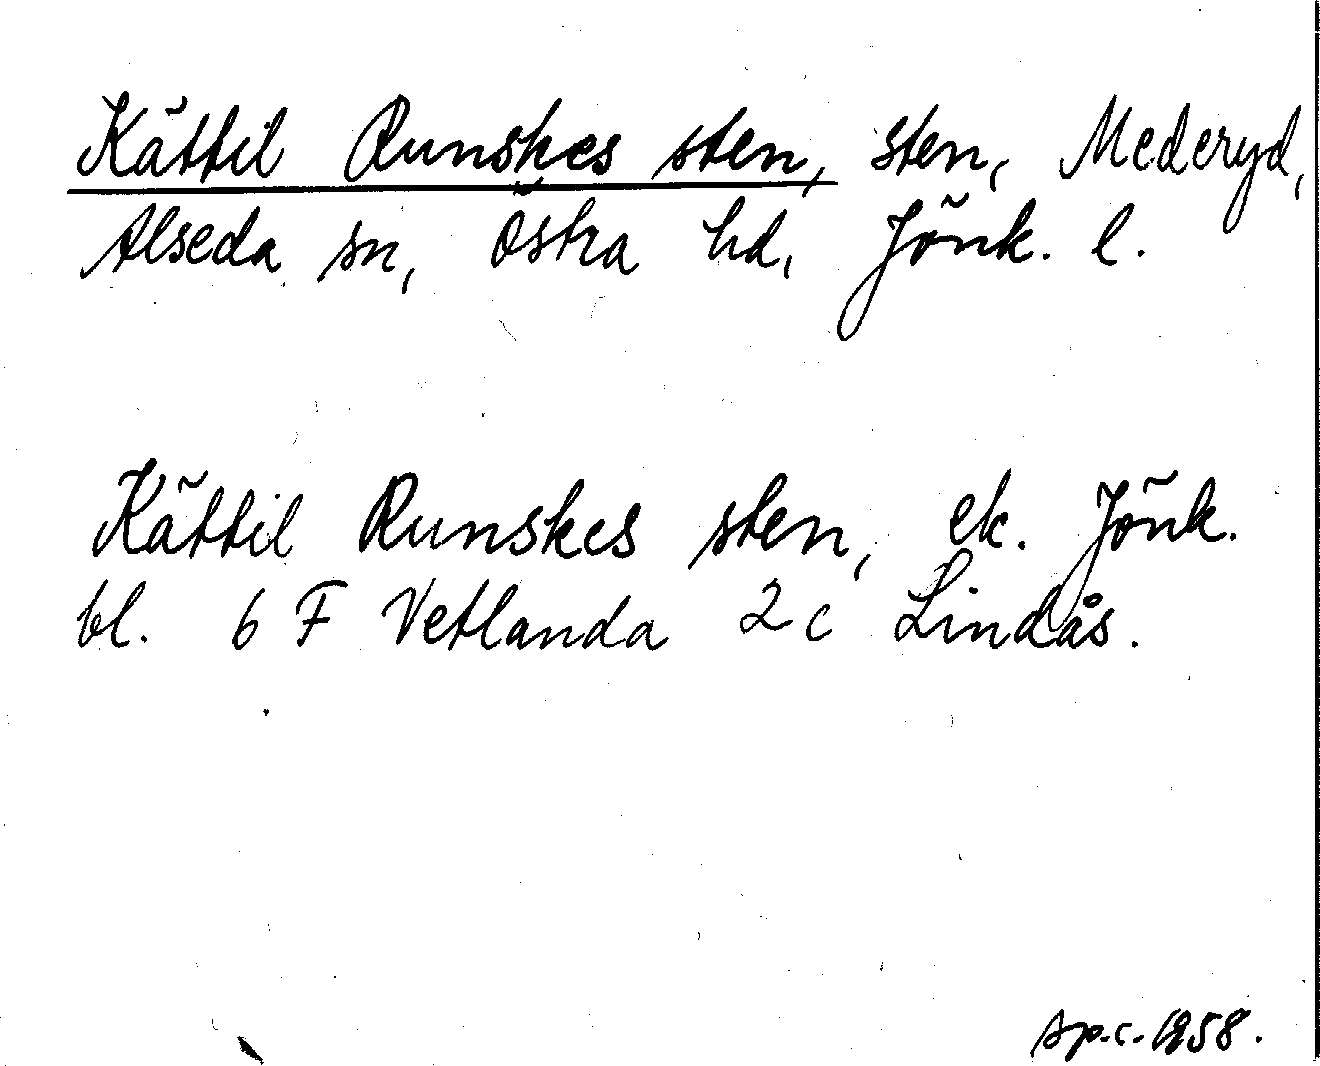 Kättil Runskes sten, sten, Mederyd,
Alseda sn, Östra hd, Jönk. l.
Kättil Runskes sten, ek. Jönk.
bl. 6 F Vetlanda 2 c Lindås.
sp.c. 1958.